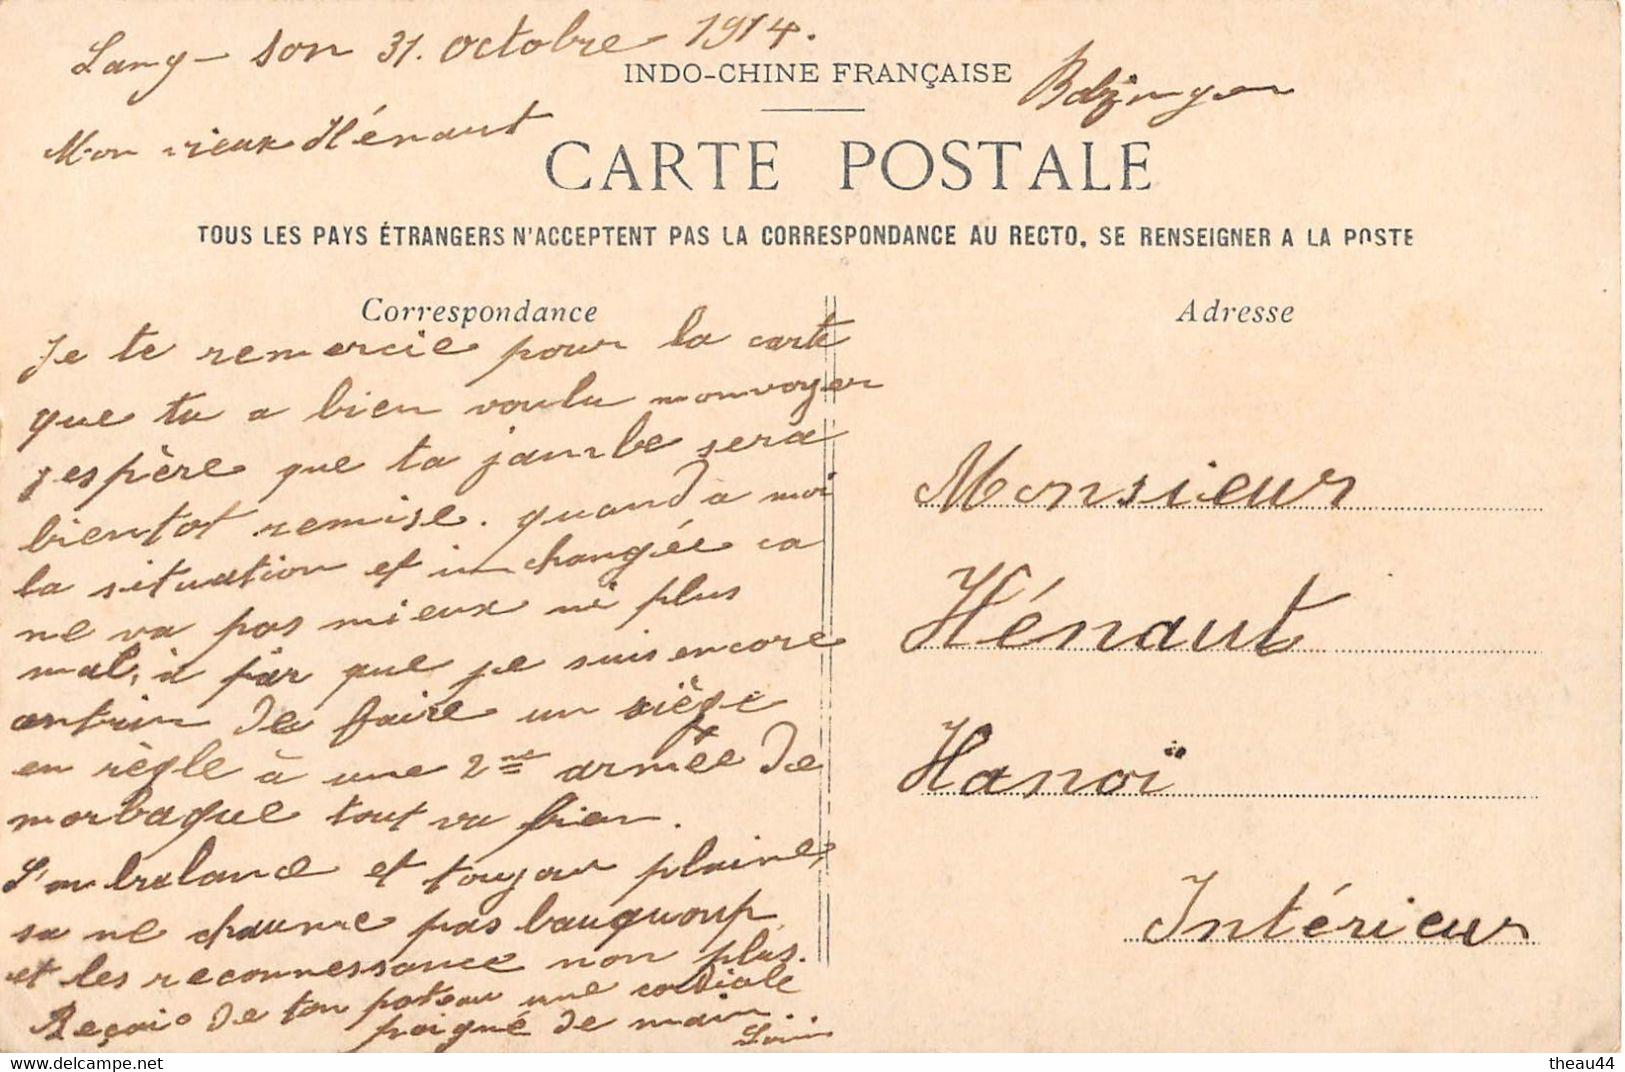 Lang-son 31. octobre 1914.
INDO-CHINE FRANÇAISE
Mon vieux Hénaut
CARTE POSTALE
TOUS LES PAYS ÉTRANGERS N'ACCEPTENT PAS LA CORRESPONDANCE AU RECTO, SE RENSEIGNER A LA POSTE
Correspondance
Je te remercie pour la carte
que tu a bien voulu monvoyer
jespère que ta jambe sera
bientot remise. quand à moi
la situation et inchangée ca
ne va pas mieux ni plus
mal, à pàr que je suis encore
antrin de faire un siège
en règle à une 2me armée de
morbaque tout va bien.
L'anbulance et toujour plaine,
sa ne chaume pas bauquoup
et les reconnessance non plus.
Reçois de ton poteau une cordiale
poigné de main
Louis
Adresse
Monsieur
Hénaut
Hanoï
Intérieur
theau44